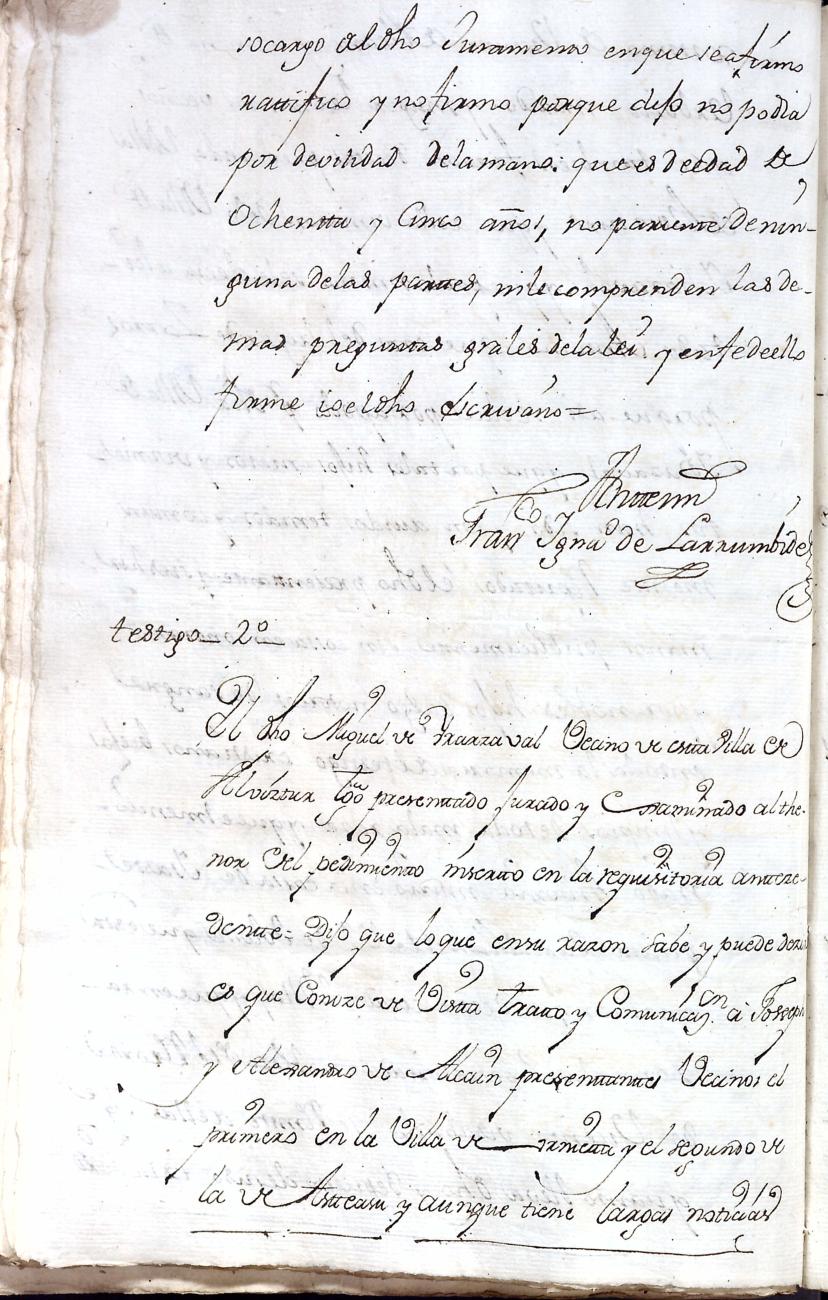 socargo del dho Juramento enque seafirmo
rattifico y nofirmo porque dijo nopodia
por devilidad delamano: que es deedad de
Ochentta y Cinco años, no pariente denin-
guna delas parttes, nile comprenden las de-
mas preguntas grales dela lei y enfedeello
firme io el dho Escrivano=
Antemi
Franco Ignao de Larrumbide
testigo 2o
El dho Miguel de Yrarrazaval Vecino de estta Villa de
Alviztur tgo presenttado Jurado y Examinado althe-
nor del pedimiento insertto en la requisitoria anttece-
dentte: Dijo que loque ensu razon Sabe y puede dezir
es que Conoze de Vistta tratto y Comunicazon a Joseph
y Alexandro de Alcain presenttantes Vecinos el
primero en la Villa de Urnietta y el segundo de
la de Astteasu y aunque tiene largas noticias